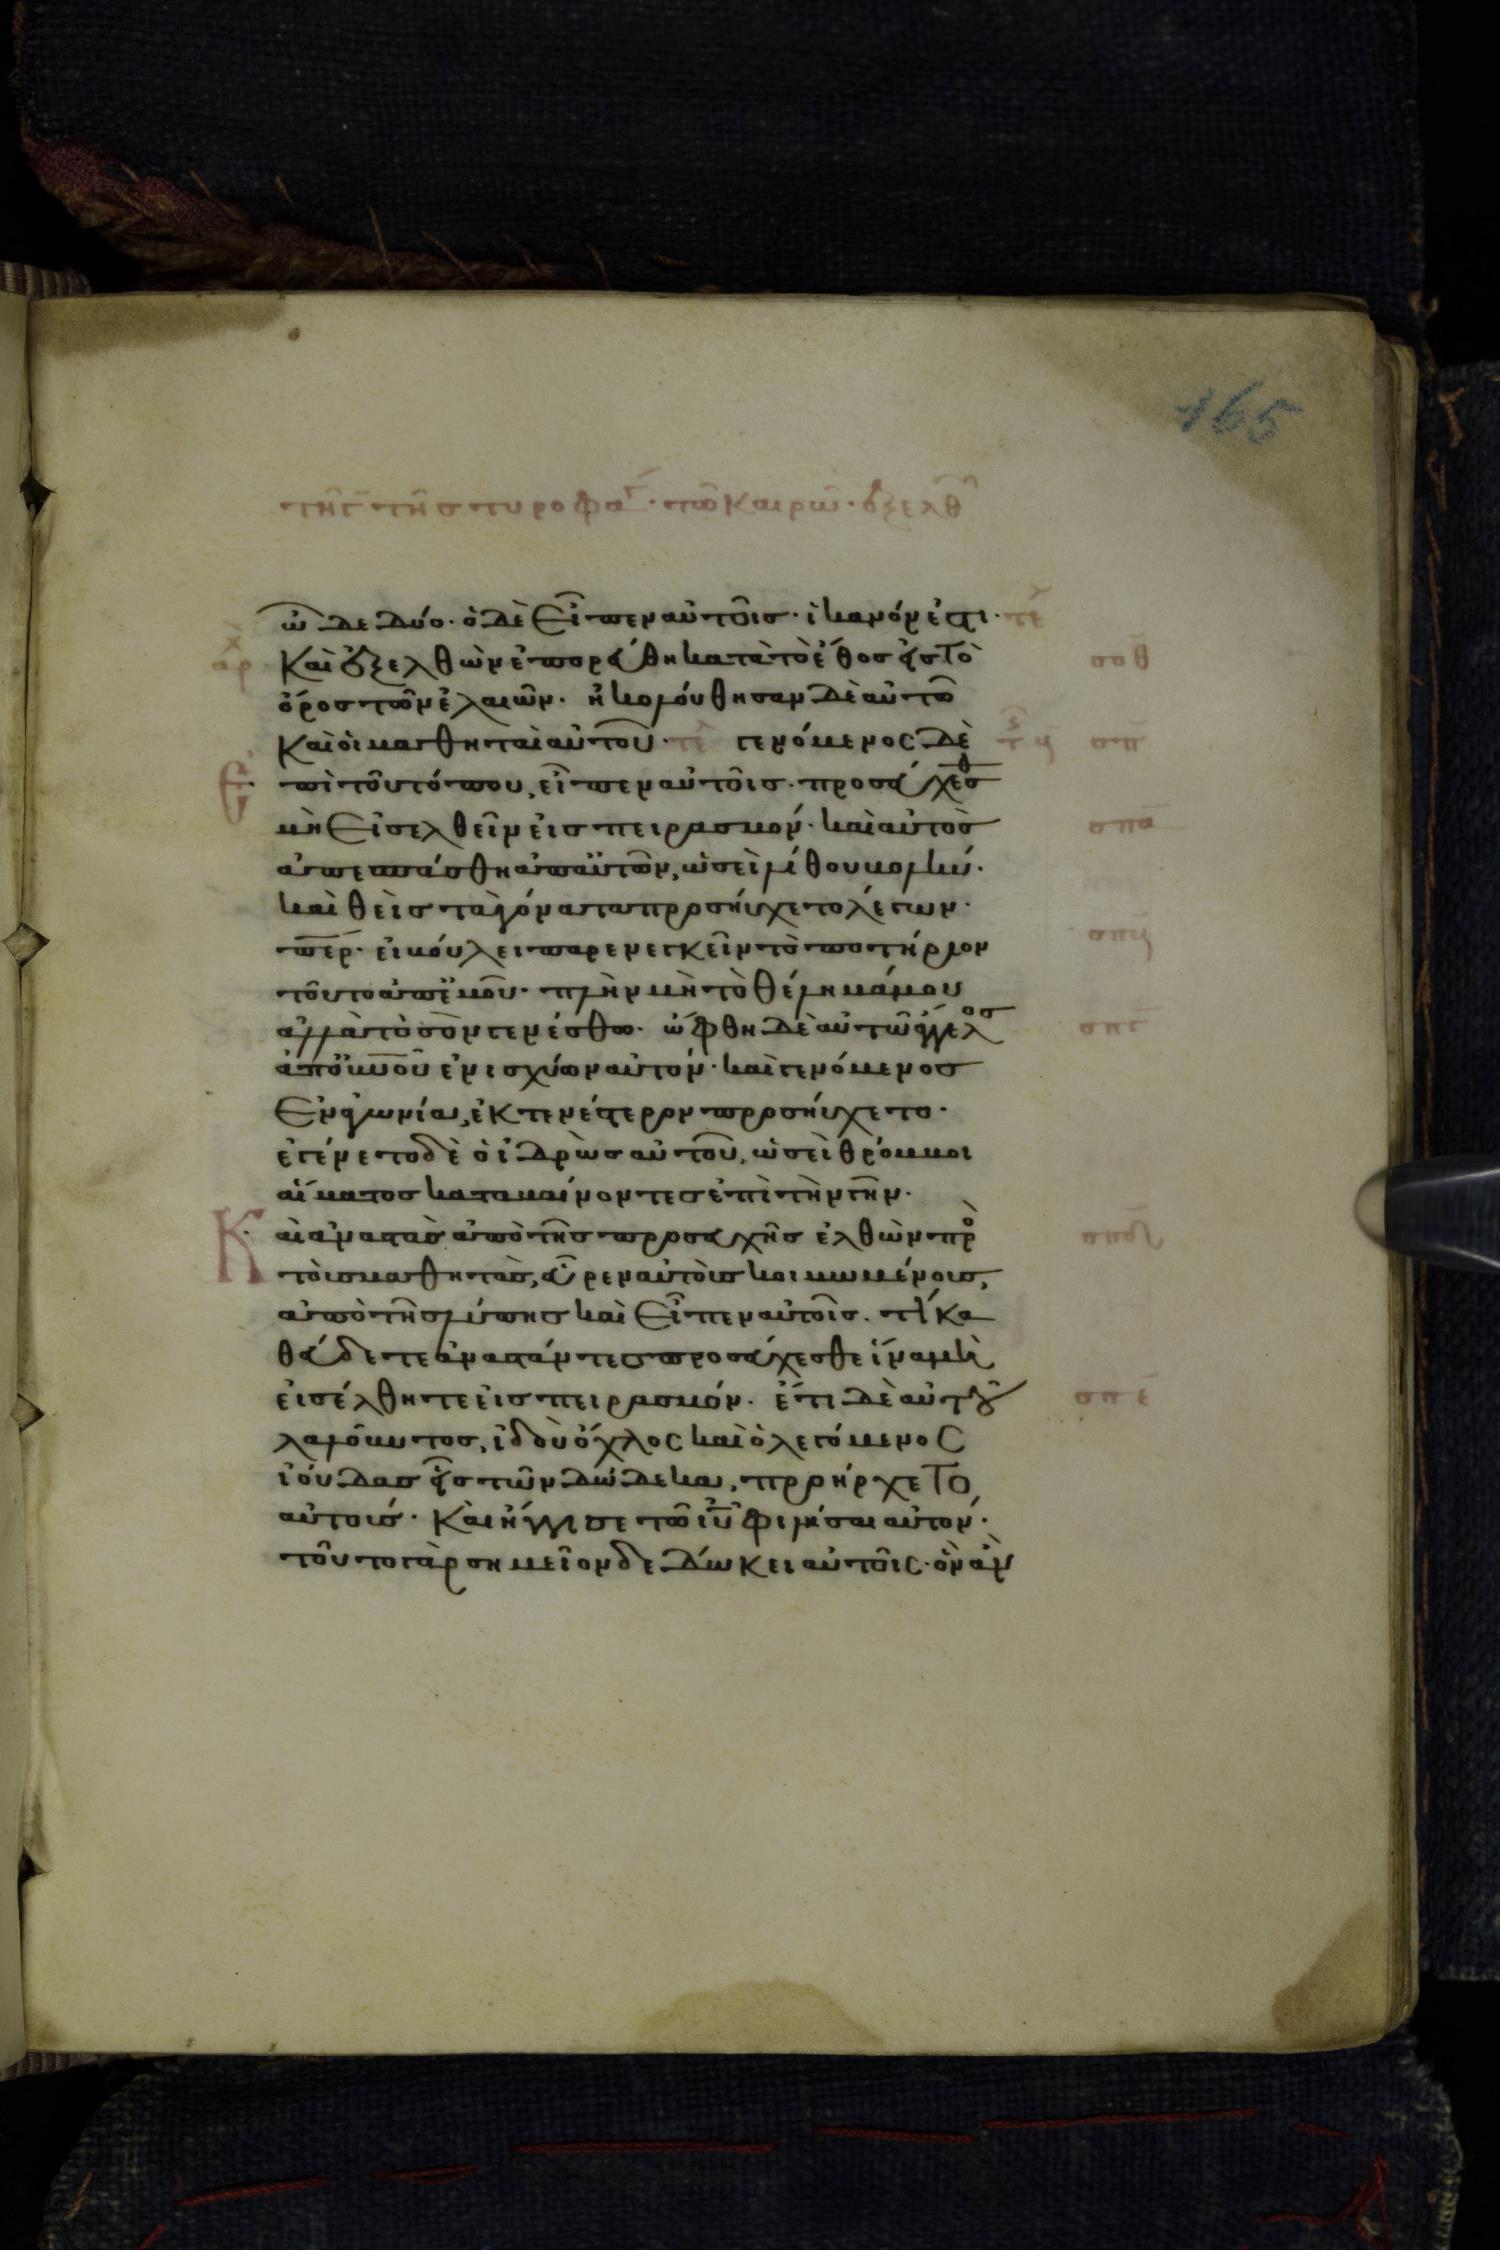 165
τῆ γ τῆς τυροφαγ· τῶ καιρῶ· ἐξελθ
ὧδε δύο· ὁ δὲ εἶπεν αὐτοῖς· ἱκανόν ἐστι· τε
αρχ
Καὶ ἐξελθὼν ἐπορεύθη κατὰ τὸ ἔθος εἰς τὸ
σοθ
ὄρος τῶν ἐλαιῶν· ἠκολούθησαν δὲ αὐτῶ
καὶ οἱ μαθηταὶ αὐτοῦ· τε γενόμενος δὲ
σπ
Ἐπὶ τοῦ τόπου, εἶπεν αὐτοῖς· προσεύχεσθ
μὴ εἰσελθεῖν εἰς πειρασμόν· καὶ αὐτὸς
σπα
ἀπεσπάσθη ἀπ αὐτῶν, ὡσεὶ λίθου βολήν·
καὶ θεὶς τὰ γόνατα προσηύχετο λέγων·
περ· εἰ βούλει παρενεγκεῖν τὸ ποτήριον
σπβ
τοῦτο ἀπ ἐμοῦ· πλὴν μὴ τὸ θέλημά μου
ἀλλὰ τὸ σὸν γενέσθω· ὤφθη δὲ αὐτῶ ἄγγελος
σπγ
ἀπ οὐνοῦ ἐνισχύων αὐτόν· καὶ γενόμενος
ἐν ἀγωνία, ἐκτενέστερον προσηύχετο·
ἐγένετο δὲ ὁ ἱδρὼς αὐτοῦ, ὡσεὶ θρόμβοι
αἵματος καταβαίνοντες ἐπὶ τὴν γῆν·
Καὶ ἀναστὰς ἀπὸ τῆς προσευχῆς ἐλθὼν πρὸ
σπδ
τοὺς μαθητὰς, εὗρεν αὐτοὺς κοιμωμένους,
ἀπὸ τῆς λύπης καὶ εἶπεν αὐτοῖς· τί κα
θεύδετε ἀναστάντες προσεύχεσθε ἵνα μὴ
εἰσέλθητε εἰς πειρασμόν· ἔτι δὲ αὐτοῦ
σπε
λαλοῦντος, ἰδοὺ ὄχλος καὶ ὁ λεγόμενος
ἰούδας εἷς τῶν δώδεκα, προήρχετο
αὐτούς· Καὶ ἤγγισε τῶ ιυ φιλῆσαι αὐτόν·
τοῦτο γὰρ σημεῖον δεδώκει αὐτοῖς· ὃν ἂν